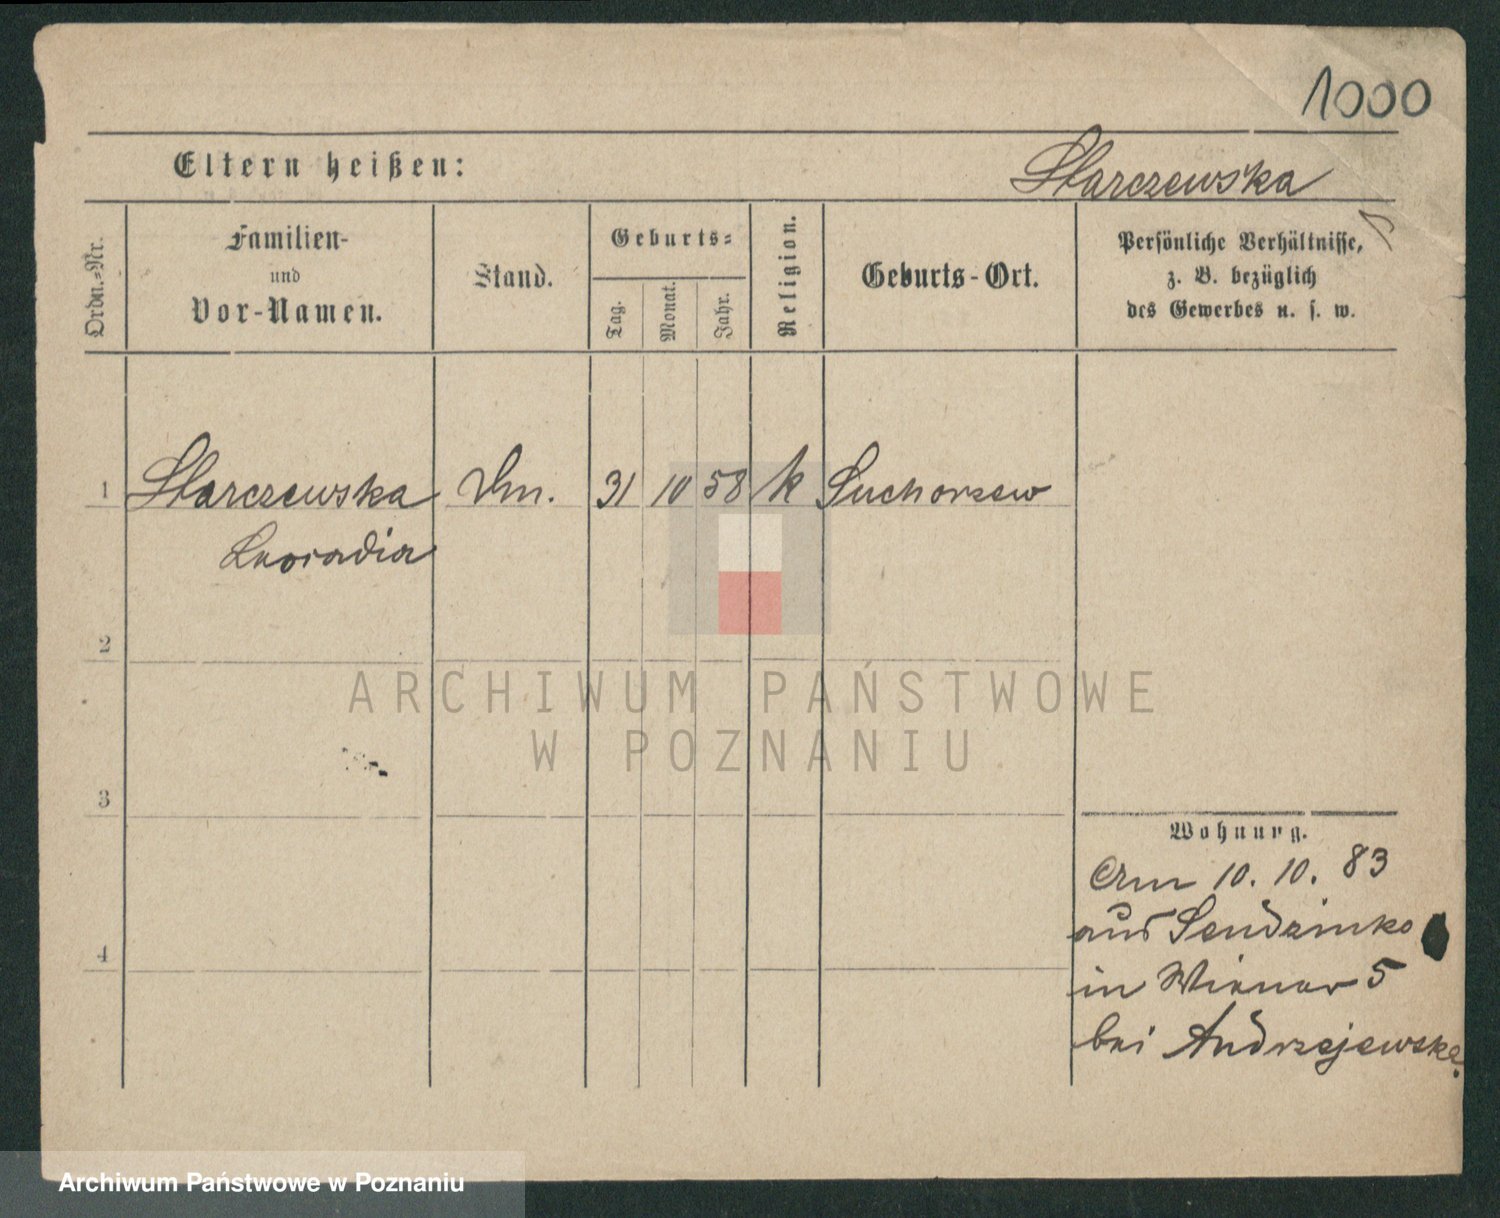 1000
Eltern heißen:
Starczewska
Ordn.-Nr.
Familien-
und
Vor-Namen.
Stand.
Geburts-
Tag.
Monat.
Jahr.
Religion.
Geburts-Ort.
Persönliche Verhältnisse,
z. B. bezüglich
des Gewerbes u. s. w.
1 Starczewska 31 10 58 k Suchorzew
Leocadia
2
3
4
Wohnung.
10. 10. 83
aus Sendzinko
in Wiener 5
bei Andrzejewska.
ARCHIWUM PAŃSTWOWE
W POZNANIU
Archiwum Państwowe w Poznaniu